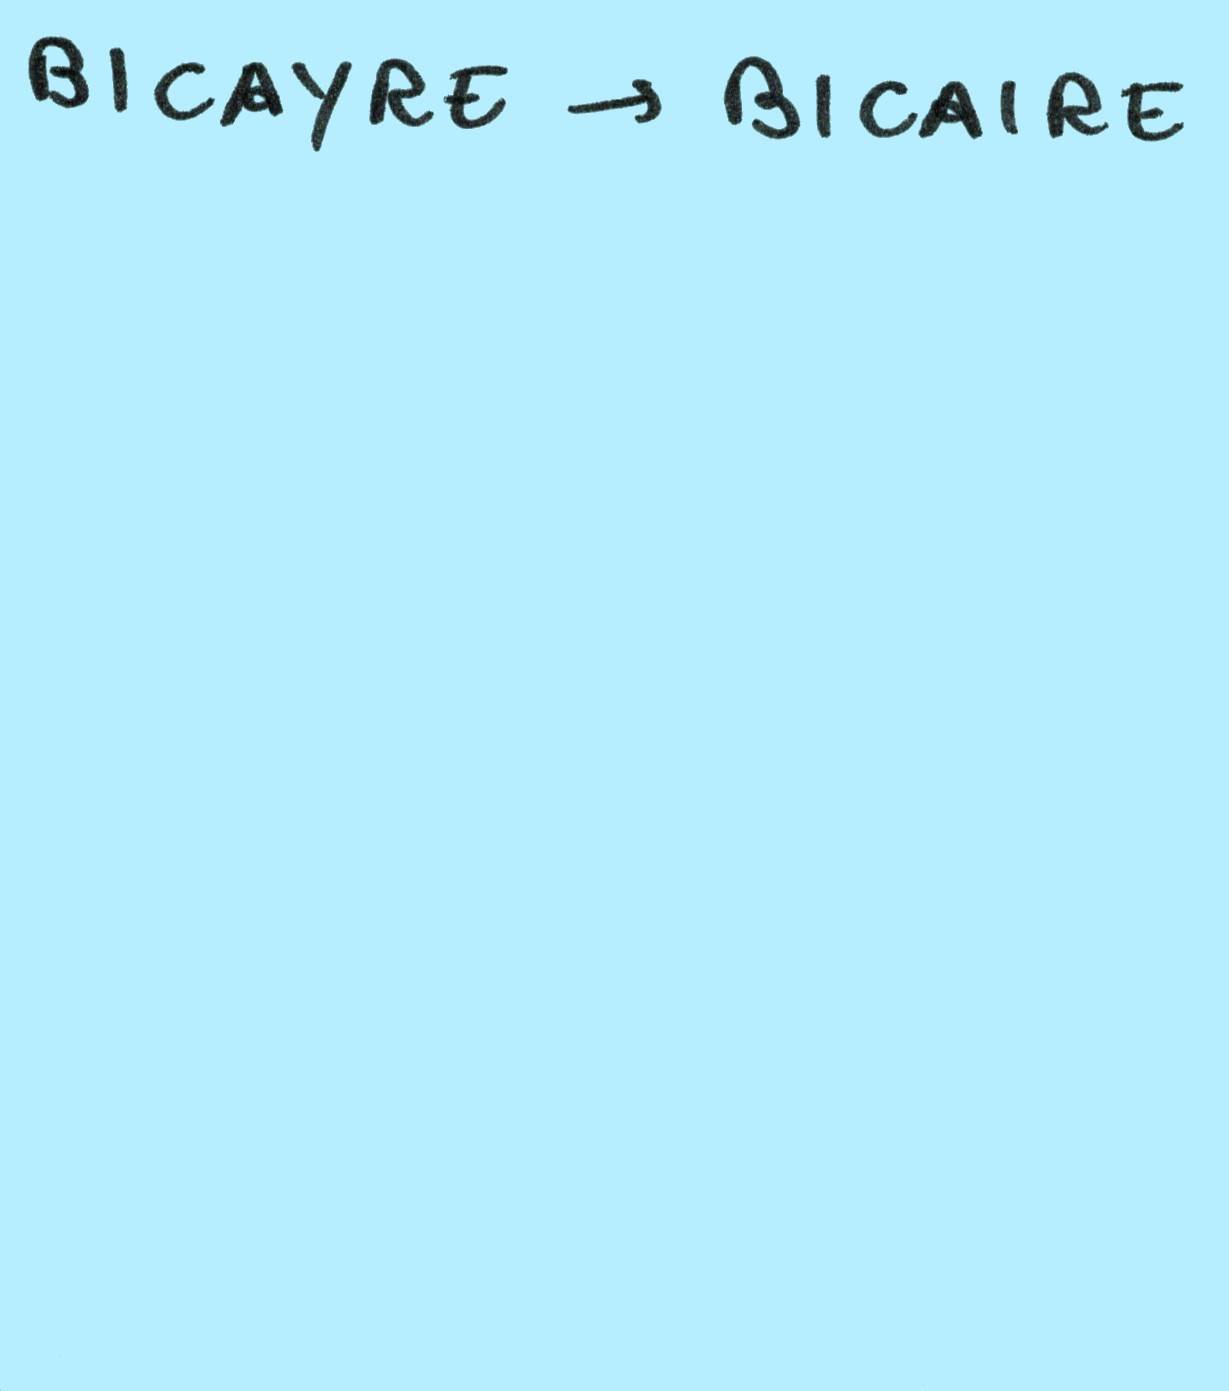 BICAYRE → BICAIRE